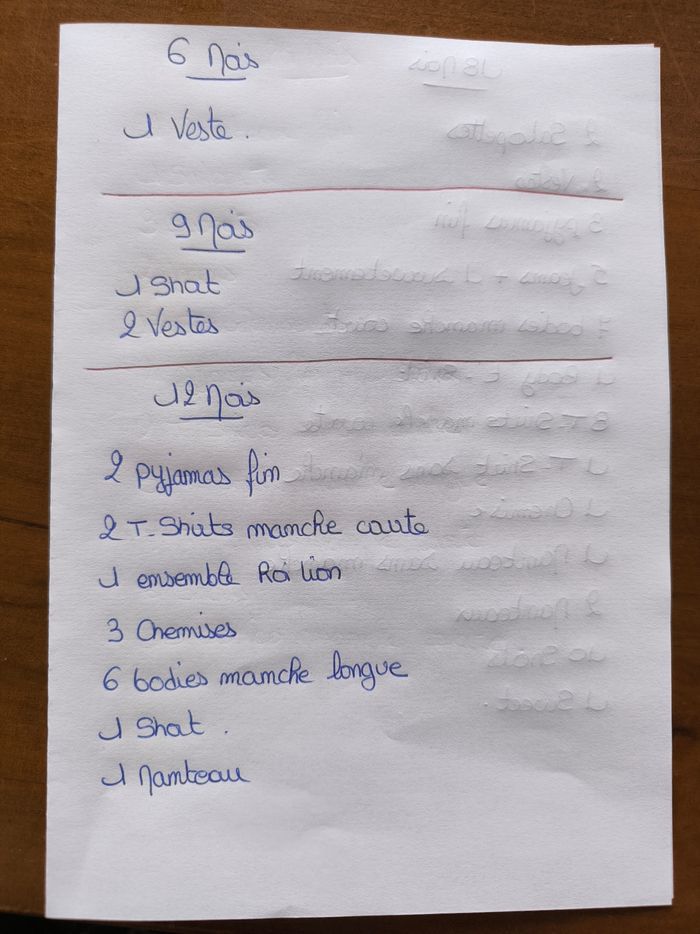 6 Mois
1 Veste.
9 Mois
1 Short
2 Vestes
12 Mois
2 pyjamas fin
2 T-Shirts manche courte
1 ensemble Roi lion
3 Chemises
6 bodies manche longue
1 Short.
1 Manteau